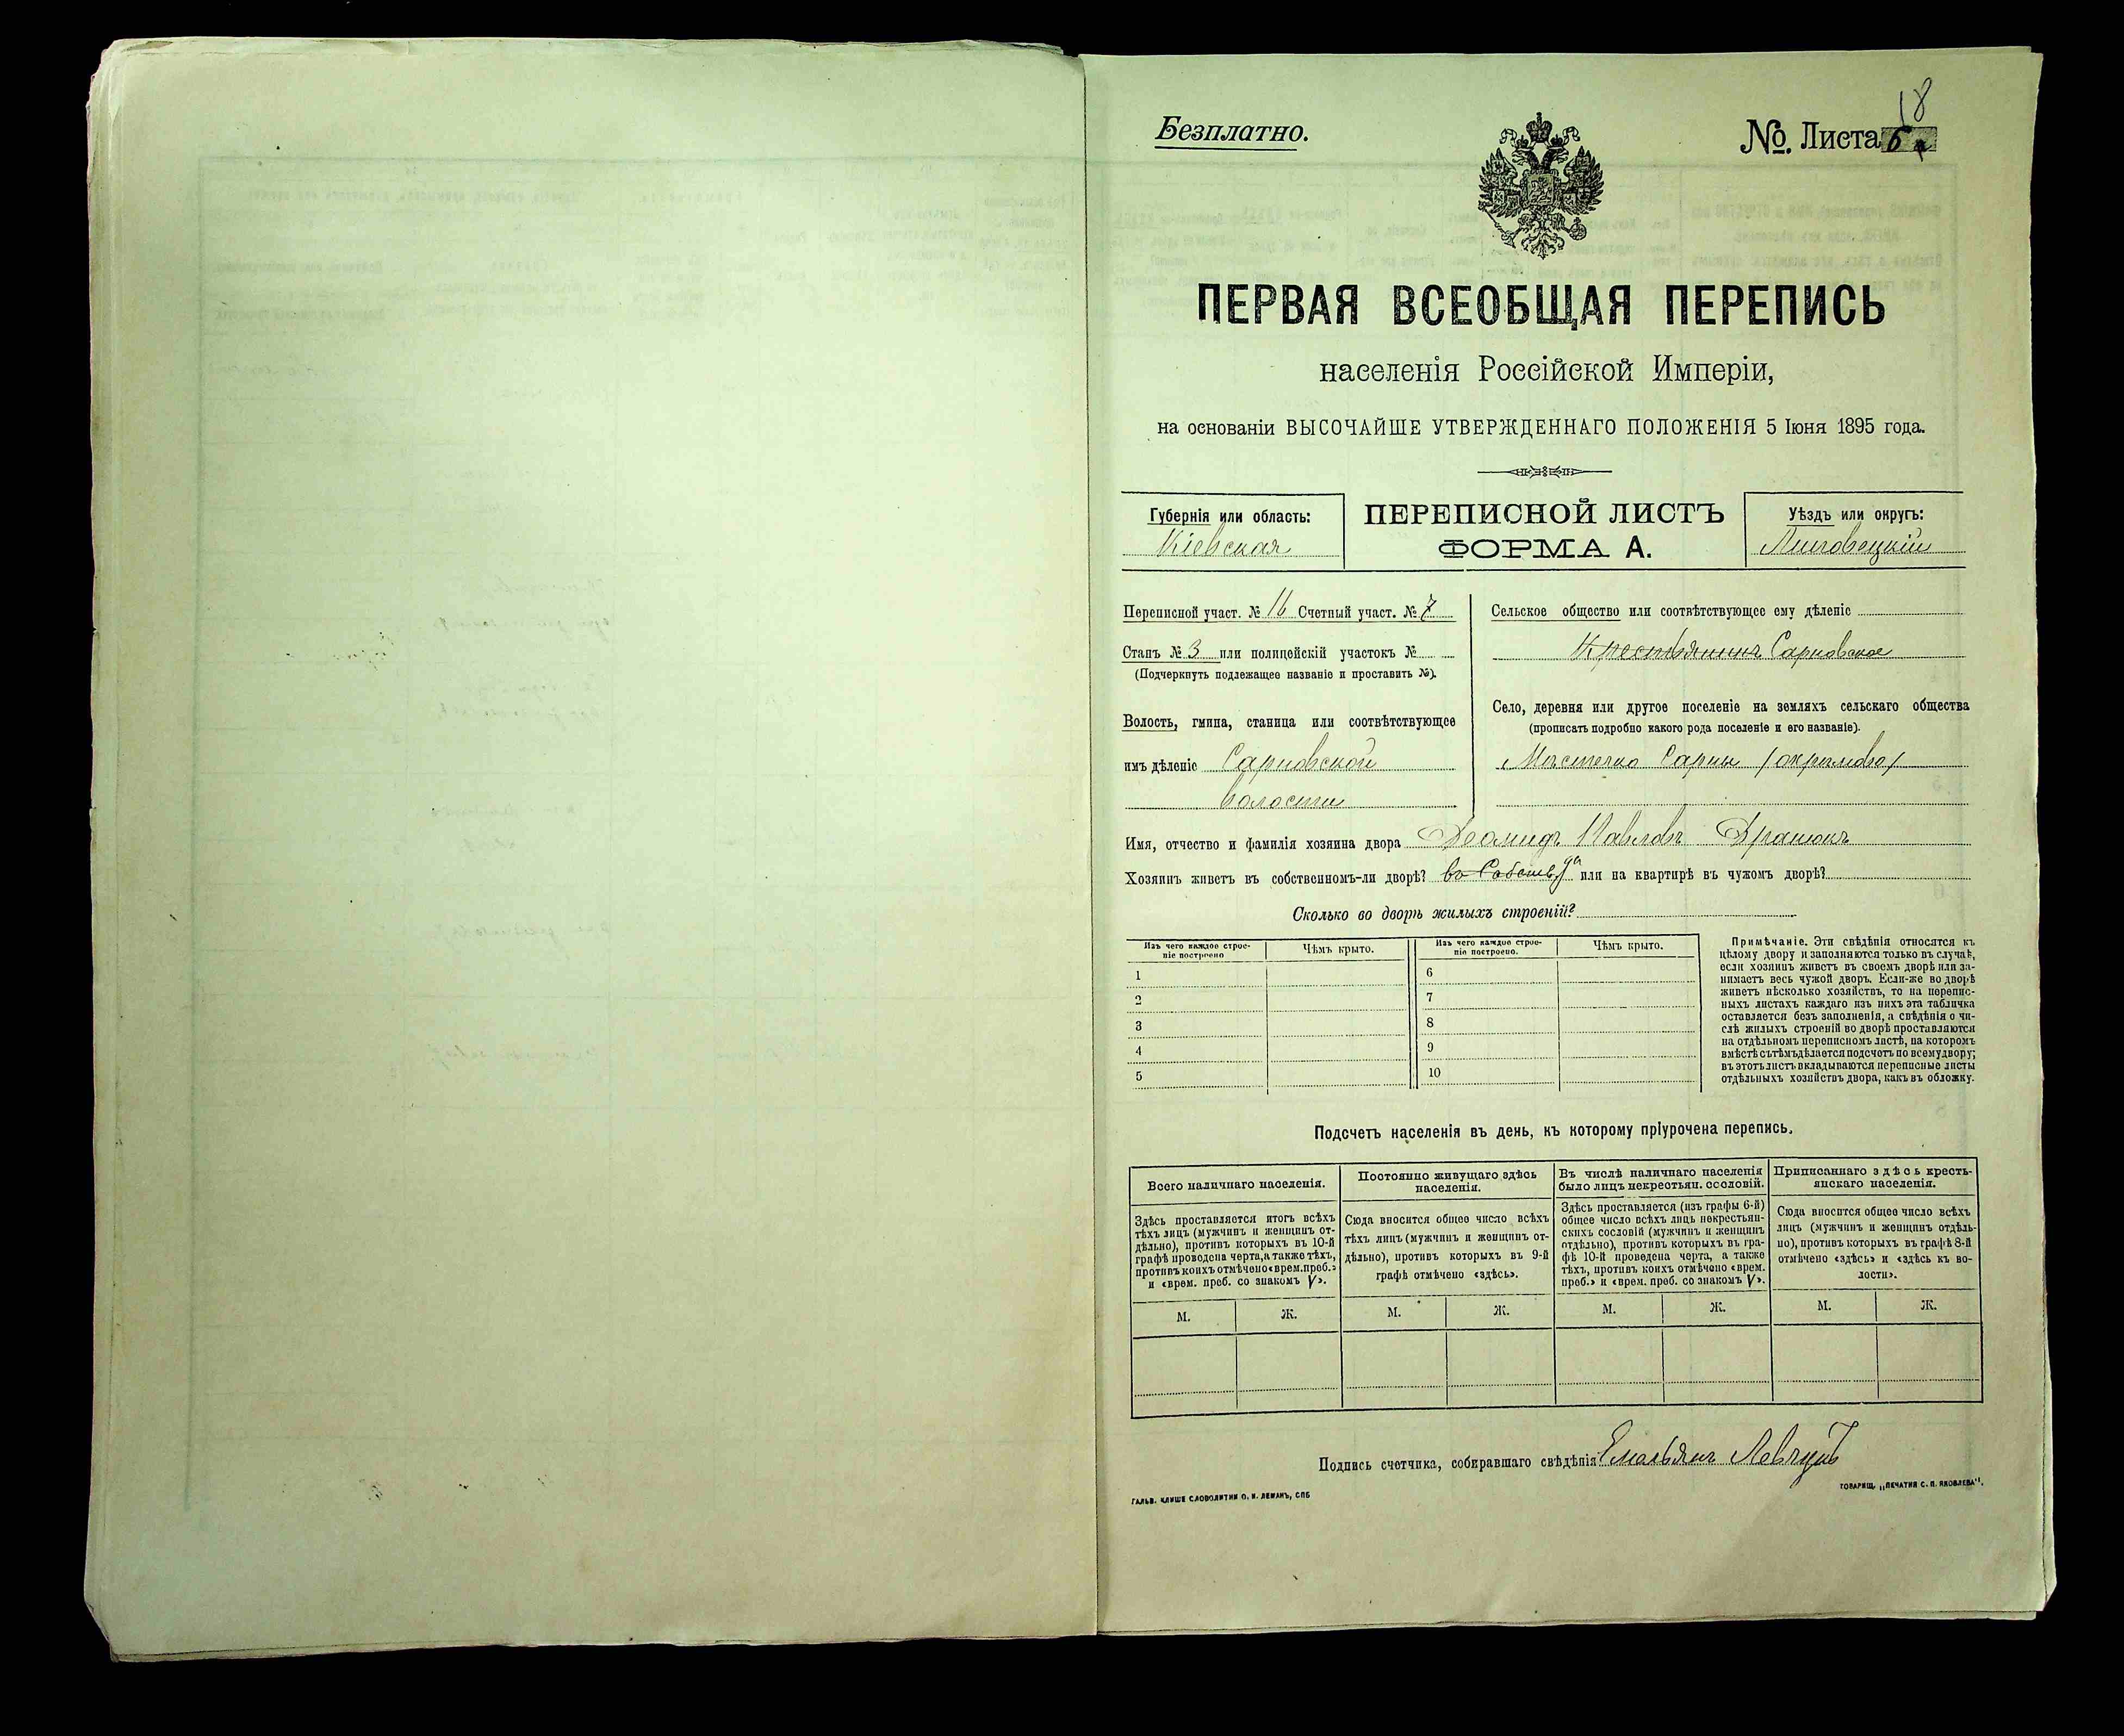 18
Безплатно.
№. Листа 6
ПЕРВАЯ ВСЕОБЩАЯ ПЕРЕПИСЬ
населенія Россійской Имперіи,
на основаніи ВЫСОЧАЙШЕ УТВЕРЖДЕННАГО ПОЛОЖЕНІЯ 5 Іюня 1895 года.
Губернія или область:
Кіевская
ПЕРЕПИСНОЙ ЛИСТЪ
ФОРМА А.
Уѣздъ или округъ:
Липовецкій
Переписной участ. № 16 Счетный участ. № 7
Станъ № 3 или полицейскій участокъ №
(Подчеркнуть подлежащее названіе и проставить №).
Волость, гмина, станица или соотвѣтствующее
имъ дѣленіе Сарновской
волости
Сельское общество или соотвѣтствующее ему дѣленіе
Крестьянинъ Сарновское
Село, деревня или другое поселеніе на земляхъ сельскаго общества
(прописать подробно какого рода поселеніе и его названіе).
Мѣстечко Сарны
Имя, отчество и фамилія хозяина двора Деомидъ Павловъ Дранюкъ
Хозяинъ живетъ въ собственномъ-ли дворѣ? въ Собств. да или на квартирѣ въ чужомъ дворѣ?
Сколько во дворѣ жилыхъ строеній?
Изъ чего каждое строе-
ніе построено
Чѣмъ крыто.
Изъ чего каждое строе-
ніе построено.
Чѣмъ крыто.
1 6
2 7
3 8
4 9
5 10
Примѣчаніе. Эти свѣдѣнія относятся къ
цѣлому двору и заполняются только въ случаѣ,
если хозяинъ живетъ въ своемъ дворѣ или за-
нимаетъ весь чужой дворъ. Если-же во дворѣ
живетъ нѣсколько хозяйствъ, то на перепис-
ныхъ листахъ каждаго изъ нихъ эта табличка
оставляется безъ заполненія, а свѣдѣнія о чи-
слѣ жилыхъ строеній во дворѣ проставляются
на отдѣльномъ переписномъ листѣ, на которомъ
вмѣстѣ съ тѣмъ дѣлается подсчетъ по всему двору;
въ этотъ листъ вкладываются переписные листы
отдѣльныхъ хозяйствъ двора, какъ въ обложку.
Подсчетъ населенія въ день, къ которому пріурочена перепись.
Всего наличнаго населенія.
Здѣсь проставляется итогъ всѣхъ
тѣхъ лицъ (мужчинъ и женщинъ от-
дѣльно), противъ которыхъ въ 10-й
графѣ проведена черта, а также тѣхъ,
противъ коихъ отмѣчено «врем. преб.»
и «врем. преб. со знакомъ V».
М. Ж.
Постоянно живущаго здѣсь
населенія.
Сюда вносится общее число всѣхъ
тѣхъ лицъ (мужчинъ и женщинъ от-
дѣльно), противъ которыхъ въ 9-й
графѣ отмѣчено «здѣсь».
М. Ж.
Въ числѣ наличнаго населенія
было лицъ некрестьян. сословій.
Здѣсь проставляется (изъ графы 6-й)
общее число всѣхъ лицъ некрестьян-
скихъ сословій (мужчинъ и женщинъ
отдѣльно), противъ которыхъ въ гра-
фѣ 10-й проведена черта, а также
тѣхъ, противъ коихъ отмѣчено «врем.
преб.» и «врем. преб. со знакомъ V».
М. Ж.
Приписаннаго здѣсь кресть-
янскаго населенія.
Сюда вносится общее число всѣхъ
лицъ (мужчинъ и женщинъ отдѣль-
но), противъ которыхъ въ графѣ 8-й
отмѣчено «здѣсь» и «здѣсь къ во-
лости».
М. Ж.
Подпись счетчика, собиравшаго свѣдѣнія Емельянъ
ГАЛЬВ. КЛИШЕ СЛОВОЛИТНИ О. И. ЛЕМАНЪ, СПБ
ТОВАРИЩ. „ПЕЧАТНЯ С. П. ЯКОВЛЕВА".